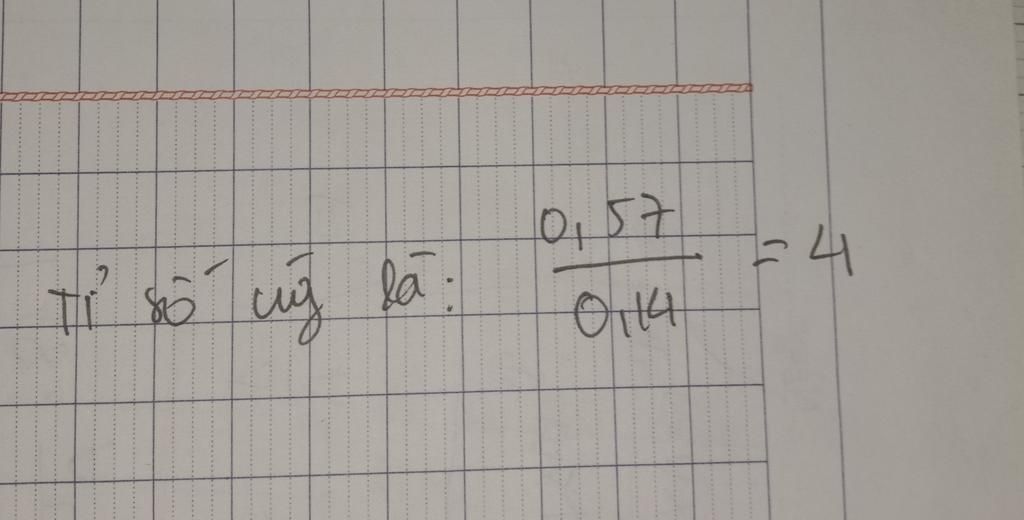 Tỉ số cũg là: 0,57 / 0,14 = 4